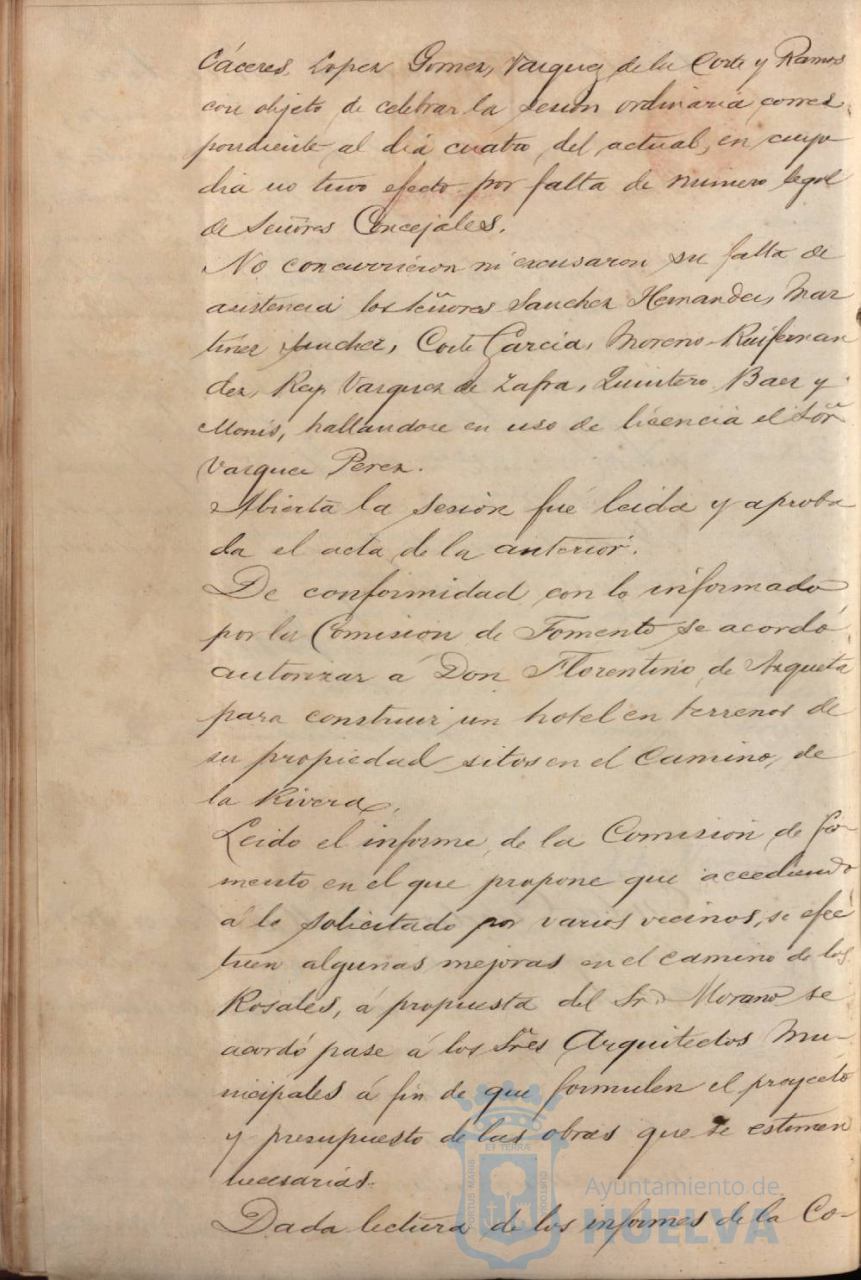 Cáceres, Lopez Gomez, Vazquez de la Corte y Ramos
con objeto de celebrar la sesión ordinaria corres
pondiente al dia cuatro del actual, en cuyo
dia no tuvo efecto por falta de número legal
de Señores Concejales.
No concurrieron ni excusaron su falta de
asistencia los Señores Sanchez Hernandez, Mar
tinez Sanchez, Corte Garcia, Moreno, Ruifernan
dez, Rey, Vazquez de Zafra, Quintero Baez y
Monis, hallandose en uso de licencia el Sor
Vazquez Perez.
Abierta la sesión fué leida y aproba
da el acta de la anterior.
De conformidad con lo informado
por la Comision de Fomento se acordó
autorizar á Don Florentino de Azqueta
para construir un hotel en terrenos de
su propiedad sitos en el Camino de
la Rivera.
Leido el informe de la Comision de Fo-
mento en el que propone que accediendo
á lo solicitado por varios vecinos, se efec
tuen algunas mejoras en el camino de los
Rosales, á propuesta del Sr. Morano se
acordó pase á los Sres Arquitectos Mu-
nicipales á fin de que formulen el proyecto
y presupuesto de las obras que se estimen
necesarias.
Dada lectura de los informes de la Co-
PORTUS MARIS
ET TERRÆ
CUSTODIA
Ayuntamiento de
HUELVA